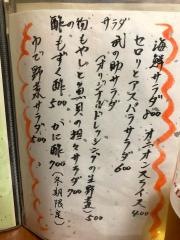 サラダ
海鮮サラダ 800 オニオンスライス 400
セロリとアスパラサラダ 600
武の助サラダ
(オリジナルドレッシングの生野菜 500
旬もやしと魚貝の担々サラダ 700
酢の物
もずく酢 500 かに酢 700 (冬期限定)
ゆで野菜サラダ 500